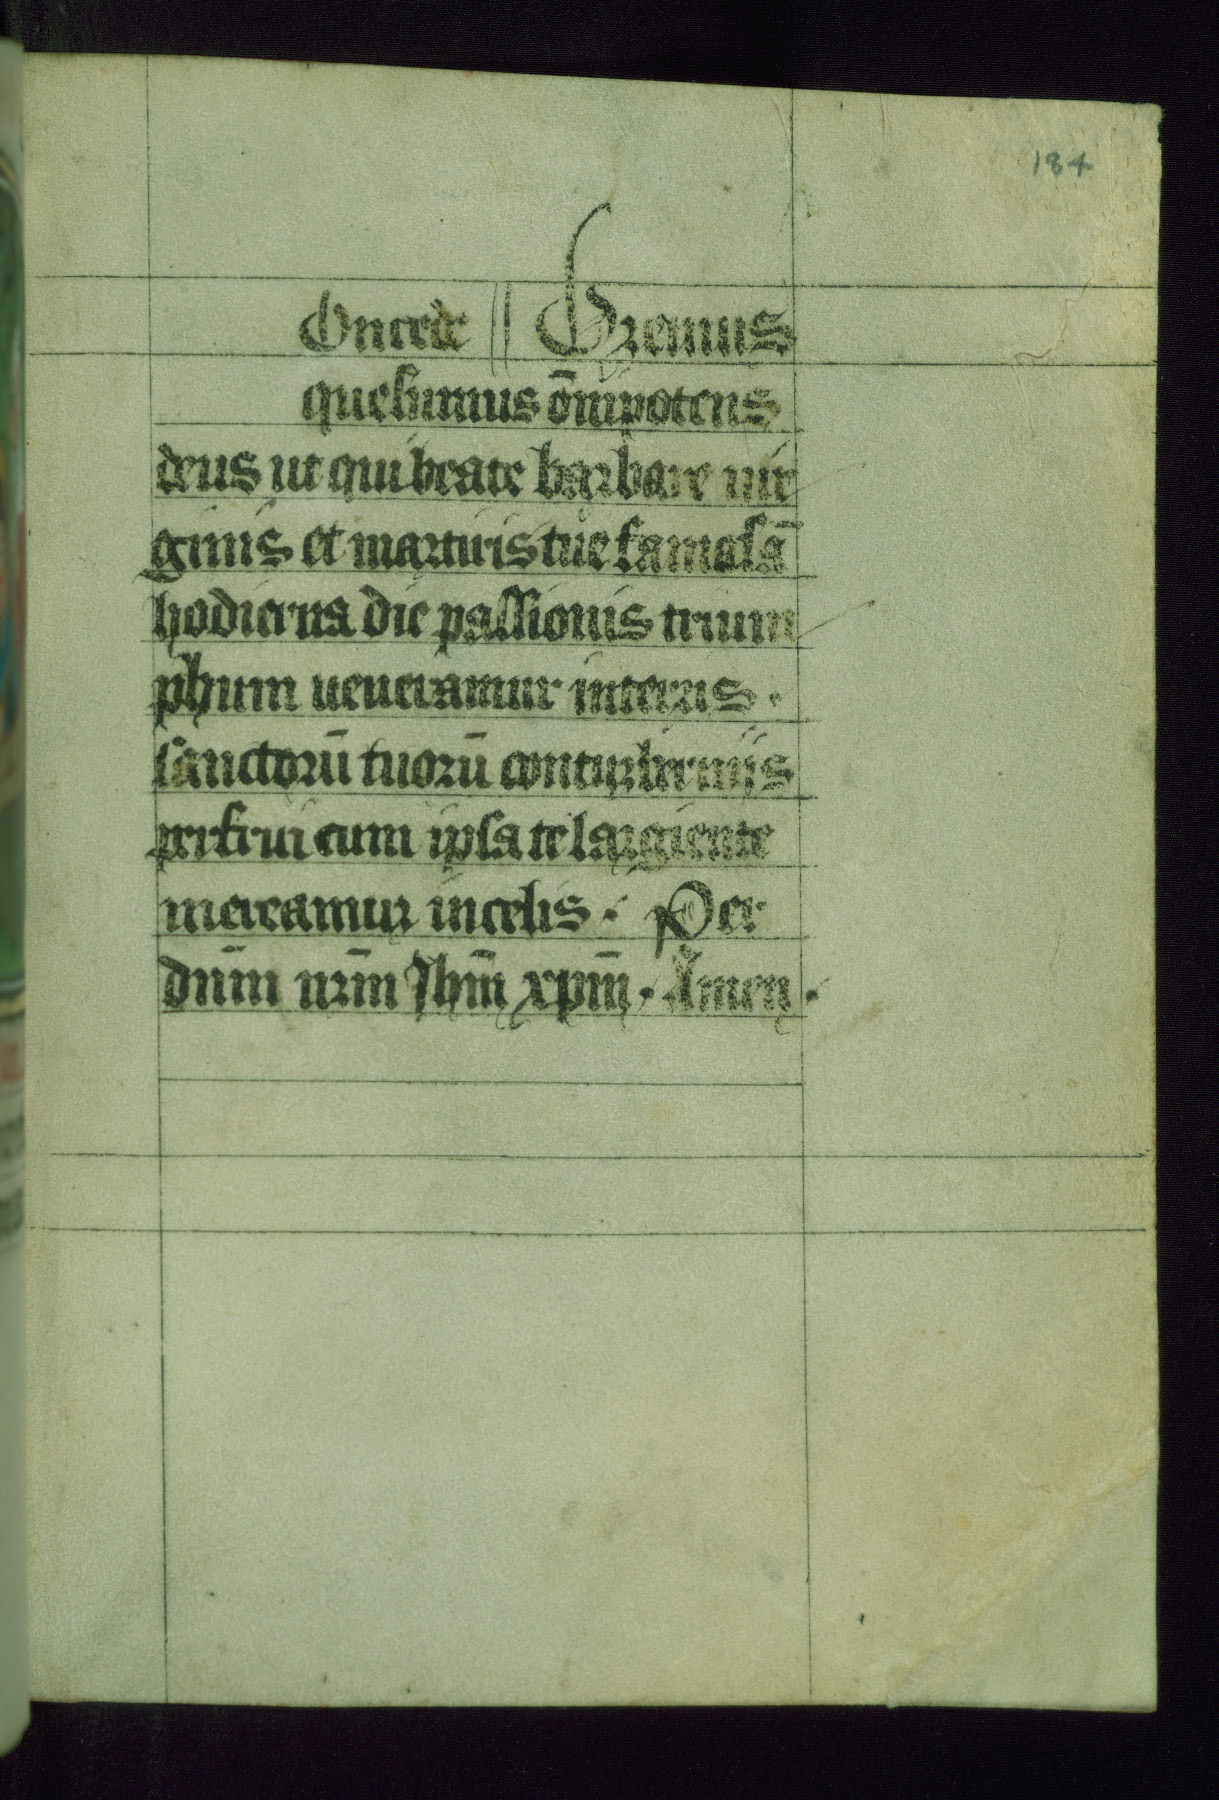 184
Oncede || Oremus
quesumus om̄ipotens
deus ut qui beate barbare uir
ginis et martiris tue famosā
hodierna die passionis trium
phum ueneramur in terris .
sanctorū tuorū conturbernijs
perfrui cum ipsa te largiente
mereamur in celis . Per
dn̄m nr̄m Jhm̄ xpm̄ . Amen .